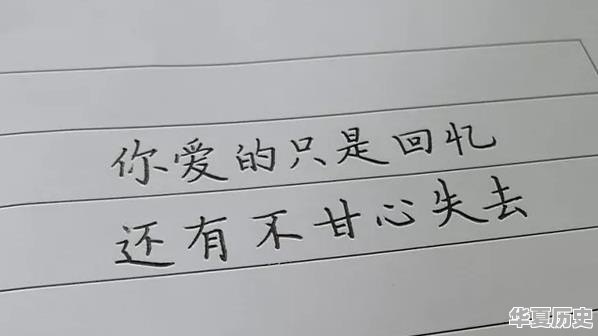 你爱的只是回忆
还有不甘心失去
华夏历史